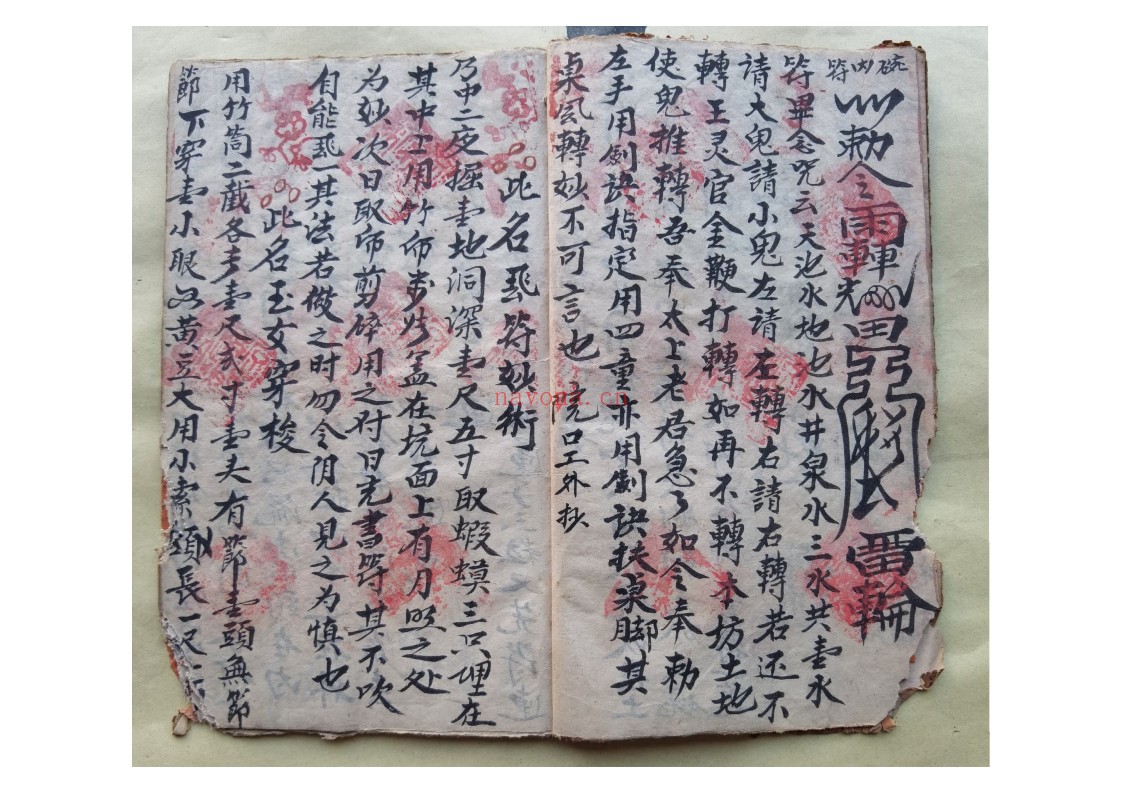 碗内符
敕令
雷輪
符畢念咒云天池水地池水井泉水三水共壹水
請大鬼請小鬼左請左轉右請右轉若还不
轉王灵官金鞭打轉如再不轉本坊土地
使鬼推轉吾奉太上老君急了如令奉勅
左手用劍訣指定用四童亦用劍訣扶桌脚其
桌風轉妙不可言也 口工外抄
此名飛符妙術
乃中二夜掘壹地洞深壹尺五寸取蝦蟆三只埋在
其中上用竹布蓋在坑面上有月照之处
为妙次日取布剪碎用之对日光書符其不吹
自能飛一其法若做之时勿令阴人見之为慎也
此名玉女穿梭
用竹筒二截各長壹尺弍寸壹头有節壹頭無節
節下穿壹小眼如黄豆大用小索頭長一尺
nayona.cn